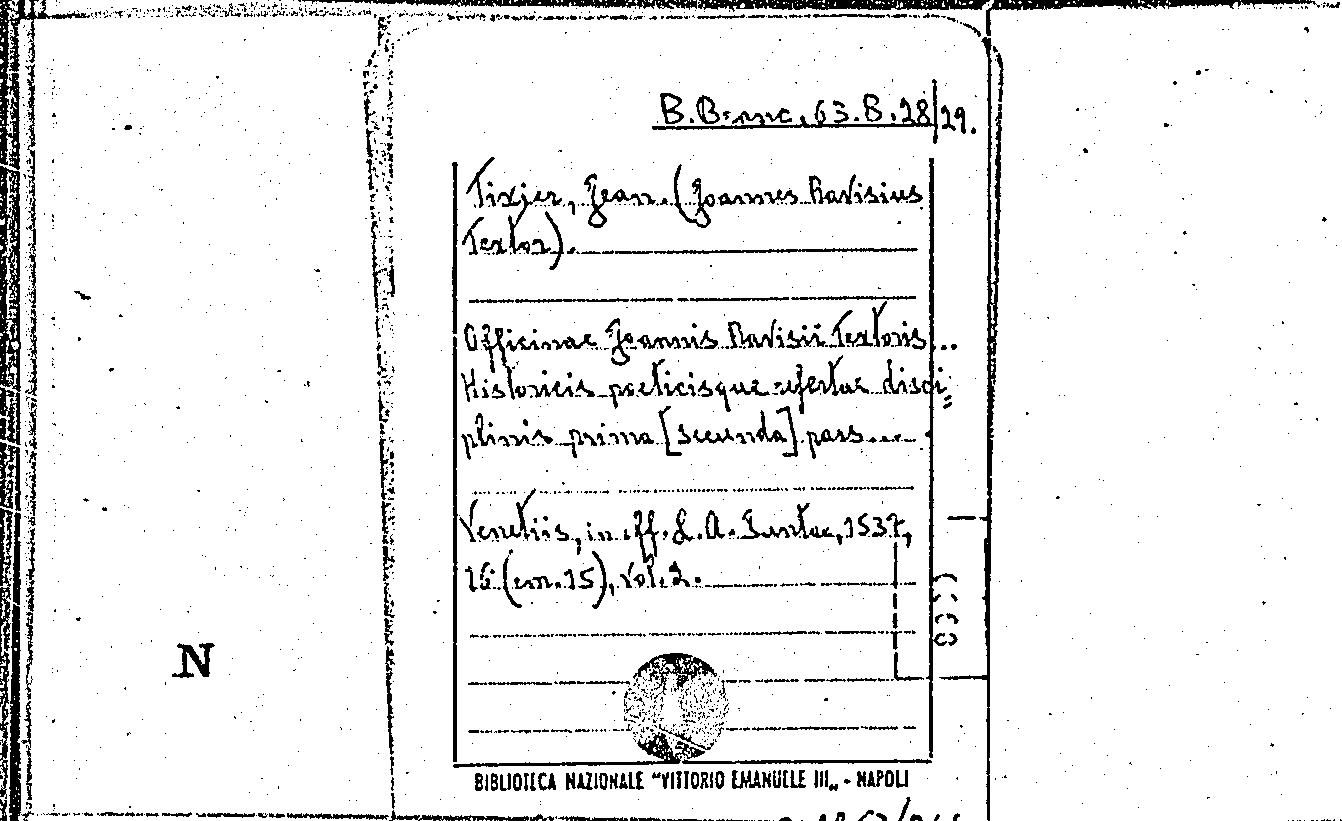 B. Branc. 63.B.28/29.
Tixier, Jean. (Joannes Ravisius
Textor).
Officinae Joannis Ravisii Textoris...
Historicis poeticisque refertae disci„
plinis prima [secunda] pars....
Venetiis, in off. L. A. Iuntae, 1537,
16° (cm. 15), vol. 2.
N
BIBLIOTECA NAZIONALE "VITTORIO EMANUELE III„ - NAPOLI